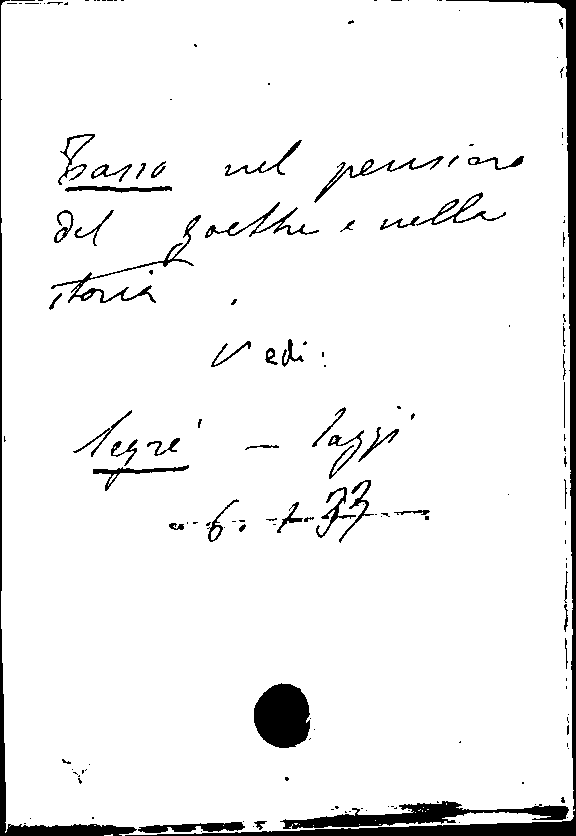 Tasso nel pensiero
del Goethe e nella
storia.
Vedi:
Segré - Saggi
6. 1 33